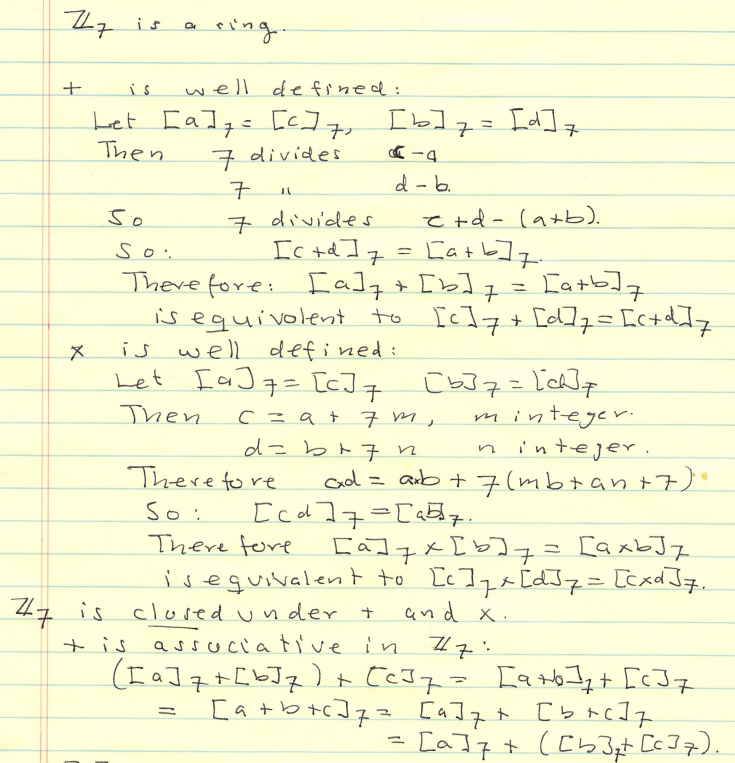 ℤ₇ is a ring.
+ is well defined:
Let [a]₇ = [c]₇, [b]₇ = [d]₇
Then 7 divides c-a
7 " d-b.
So 7 divides c+d-(a+b).
So: [c+d]₇ = [a+b]₇.
Therefore: [a]₇ + [b]₇ = [a+b]₇
is equivalent to [c]₇ + [d]₇ = [c+d]₇
x is well defined:
Let [a]₇ = [c]₇ [b]₇ = [d]₇
Then c = a + 7m, m integer.
d = b + 7n n integer.
Therefore cxd = axb + 7(mb+an+7)
So: [cd]₇ = [ab]₇.
Therefore [a]₇ x [b]₇ = [axb]₇
is equivalent to [c]₇ x [d]₇ = [cxd]₇.
ℤ₇ is closed under + and x.
+ is associative in ℤ₇:
([a]₇ + [b]₇) + [c]₇ = [a+b]₇ + [c]₇
= [a+b+c]₇ = [a]₇ + [b+c]₇
= [a]₇ + ([b]₇ + [c]₇).